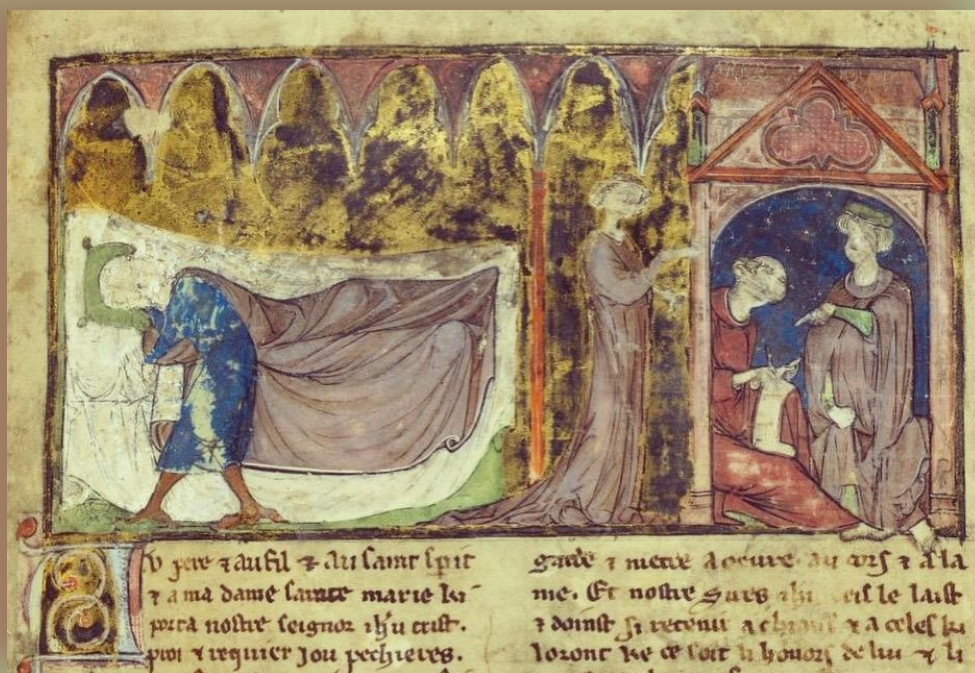 v pere ⁊ au fil ⁊ au saint spit
⁊ a ma dame sainte marie ki
porta nostre seignor ihu crist.
proi ⁊ requier jou pechieres.
garde ⁊ metre a oeuvre au cors ⁊ a la
me. Et nostre sires le laist
⁊ doinst si retenir a chiaus ⁊ a celes ki
loront ke ce soit li honors de lui ⁊ li